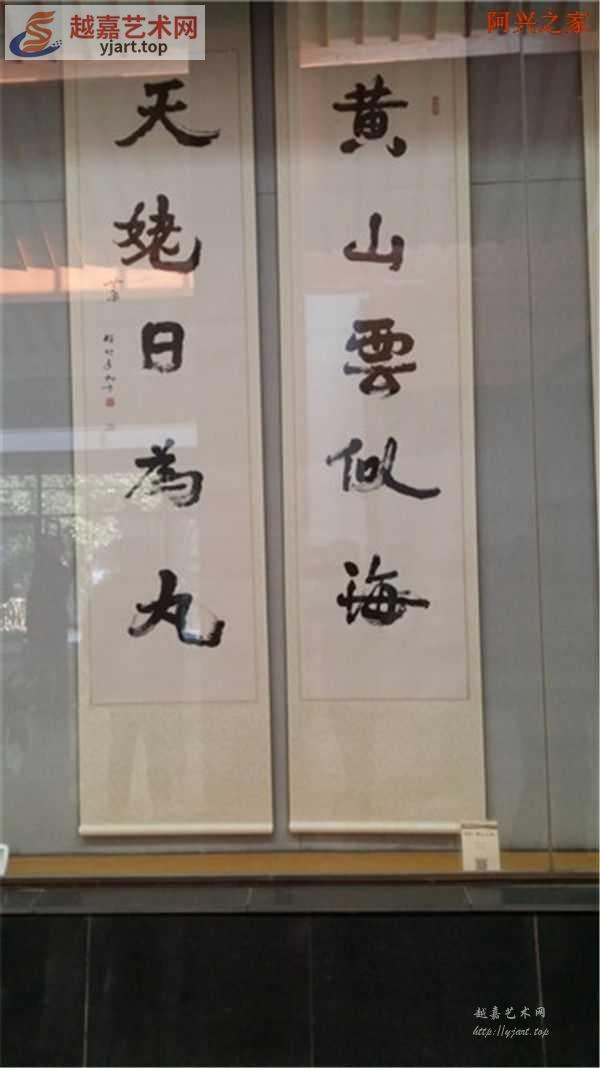 越嘉艺术网
yjart.top
阿兴之家
黄山雲似海
天姥日為丸
越嘉艺术网
http://yjart.top